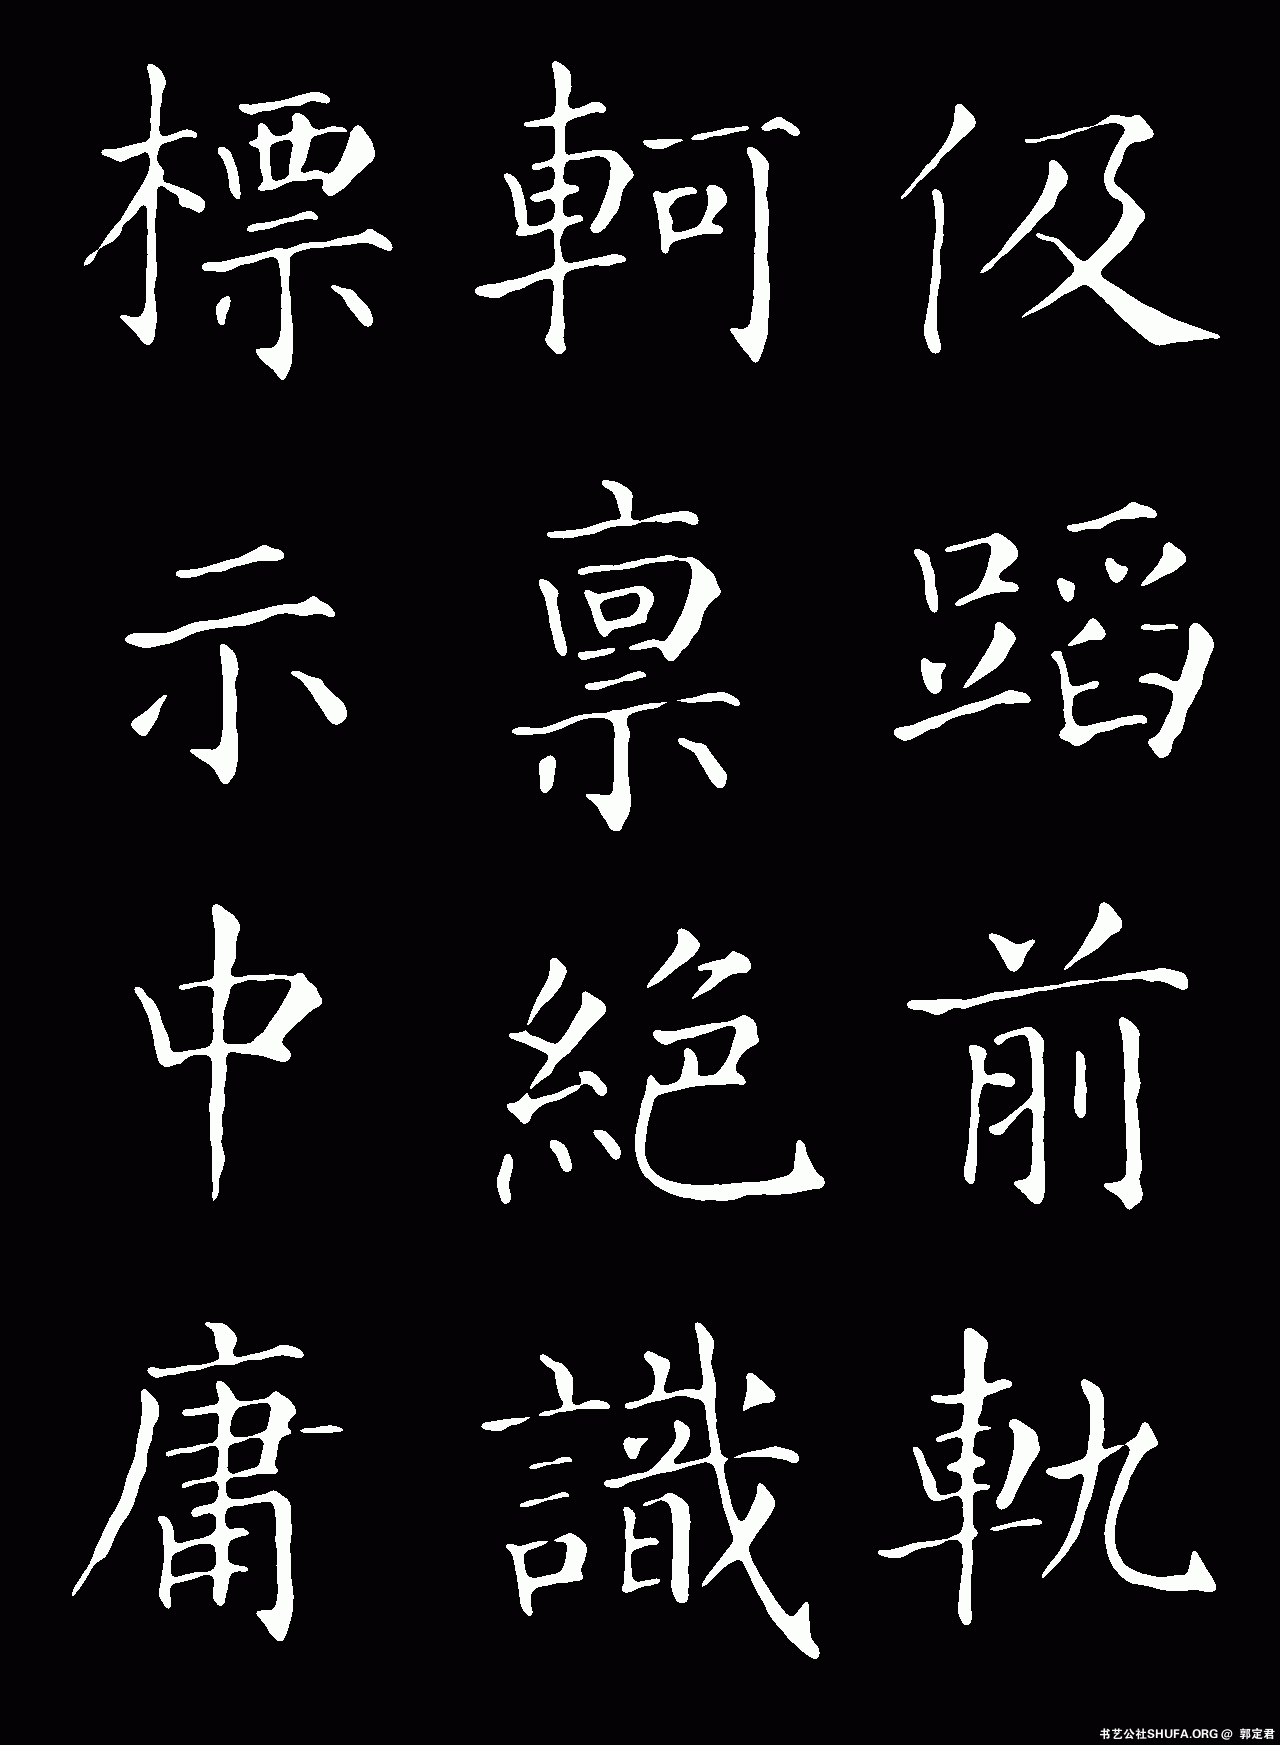 伋蹈前軌
軻稟絕識
標示中庸
书艺公社SHUFA.ORG @ 郭定君